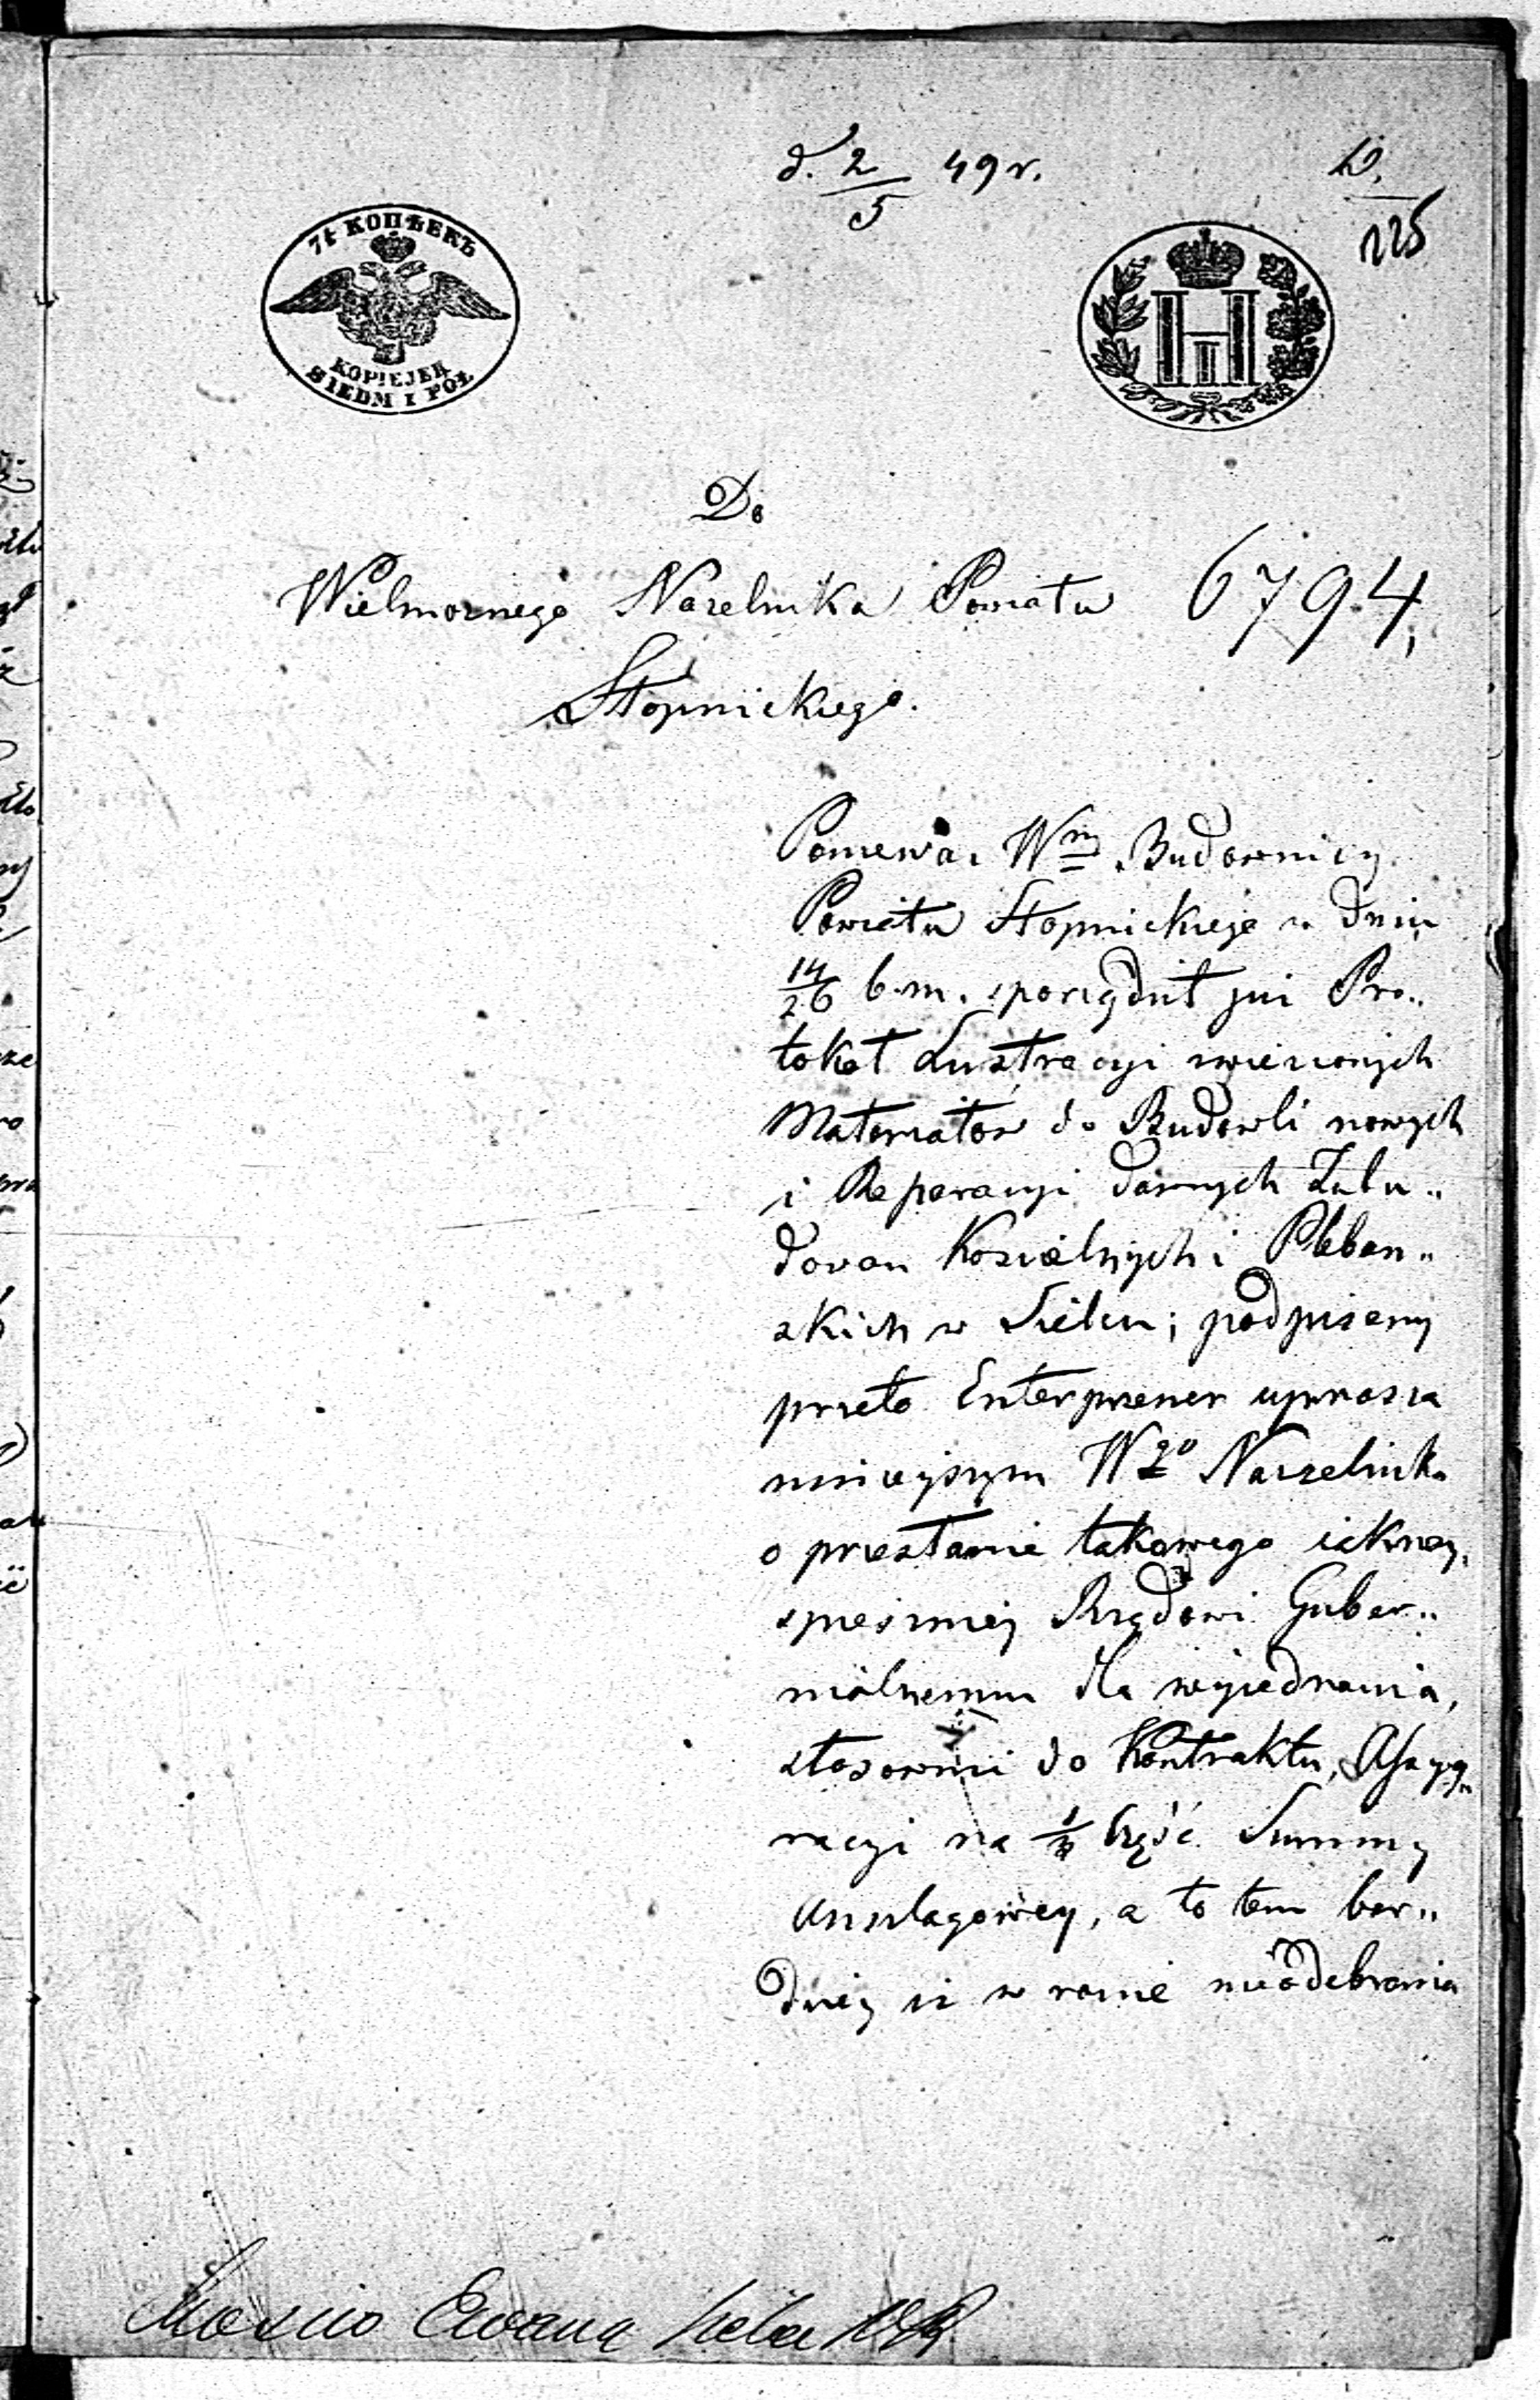 d. 2/5 49 r.
D.
225
7½ КОПѢЕКЪ
KOPIEJEK
SIEDM I PÓŁ
Do
Wielmożnego Naczelnika Powiatu
6794,
Stopnickiego.
Ponieważ Wny Budowniczy
Powiatu Stopnickiego w dniu
14/26 b. m. sporządził już Pro„
tokół Lustracyi zwiezionych
Materiałów do Budowli nowych
i Reparacyi dawnych Zabu„
dowań Kościelnych i Pleban„
skich w Sielcu; podpisany
przeto Enterprener uprasza
ninieyszym Wgo Naczelnika
o przesłanie takowego iaknay„
spieszniey Rządowi Guber„
nialnemu dla wyiednania,
stosownie do Kontraktu, Assyg„
nacyi na część Summy
Anszlagowey, a to tem bar„
dziey iż w razie nieodebrania